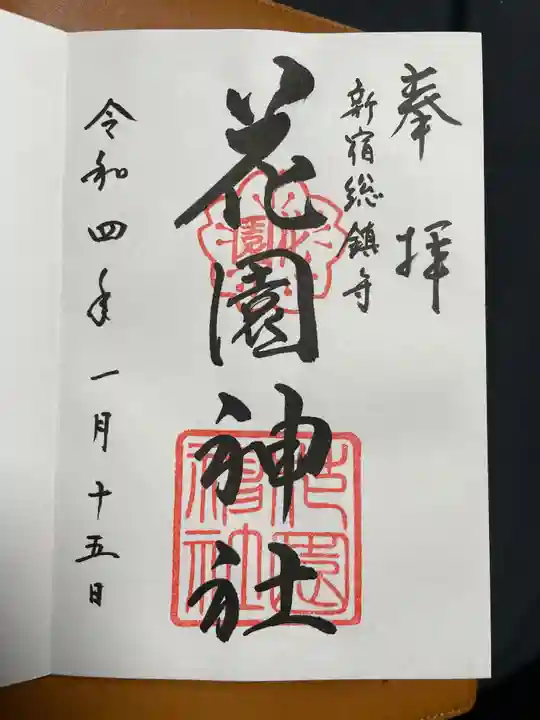 奉拝
新宿総鎮守
花園神社
令和四年一月十五日
花園
花園神社